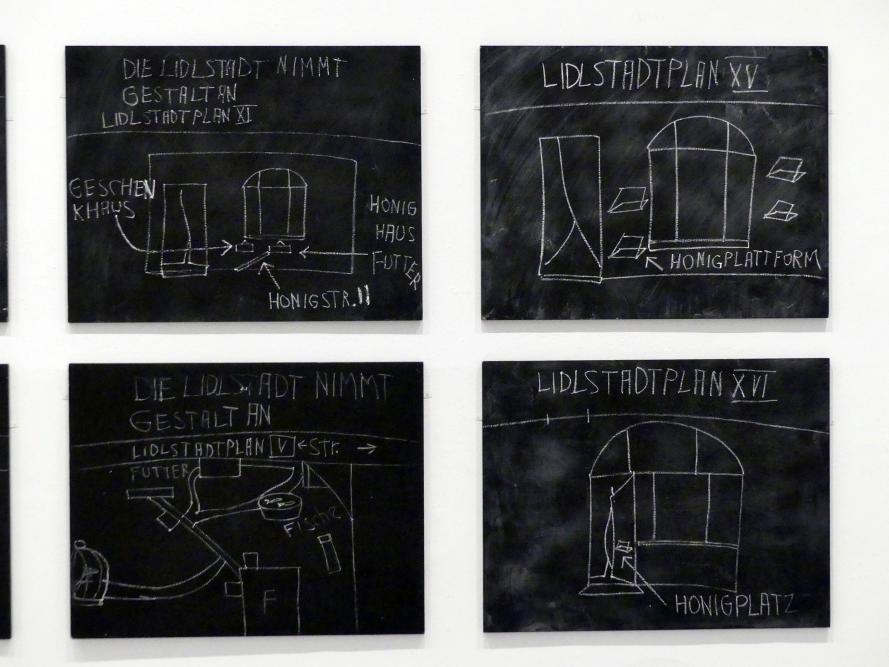 DIE LIDLSTADT NIMMT
GESTALT AN
LIDLSTADTPLAN XI
GESCHEN
KHAUS
HONIG
HAUS
FUTTER
HONIGSTR. II
LIDLSTADTPLAN XV
HONIGPLATTFORM
DIE LIDLSTADT NIMMT
GESTALT AN
LIDLSTADTPLAN V ← Str. →
FUTTER
Fische
F
LIDLSTADTPLAN XVI
HONIGPLATZ